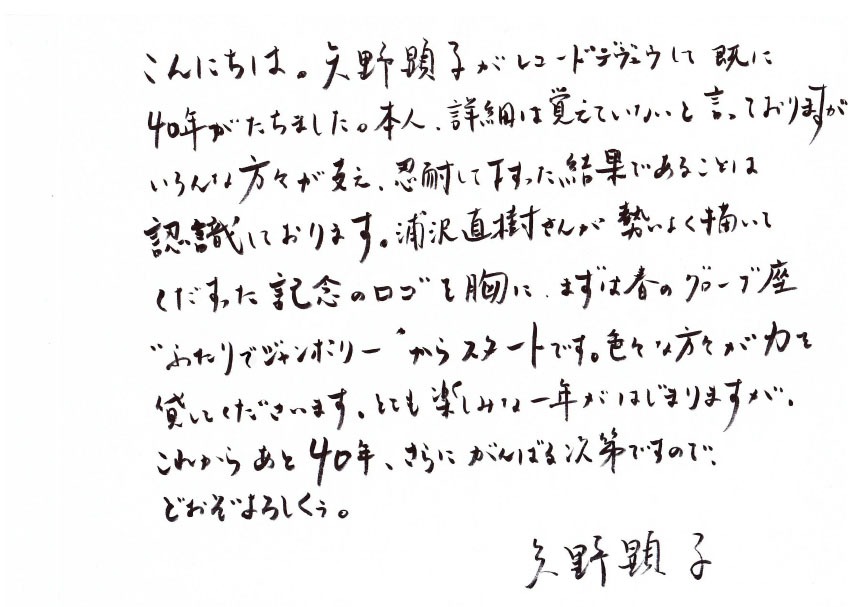 こんにちは。矢野顕子がレコードデヴュウして 既に
40年がたちました。本人、詳細は覚えていないと言っておりますが
いろんな方々が支え、忍耐して下すった結果であることは
認識しております。浦沢直樹さんが 勢いよく描いて
くだすった 記念のロゴを胸に、まずは春のグローブ座
“ふたりでジャンボリー”からスタートです。色々な方々が力を
貸してくださいます。とても楽しみな一年がはじまりますが、
これからあと40年、さらにがんばる次第ですので、
どおぞよろしくぅ。
矢野顕子